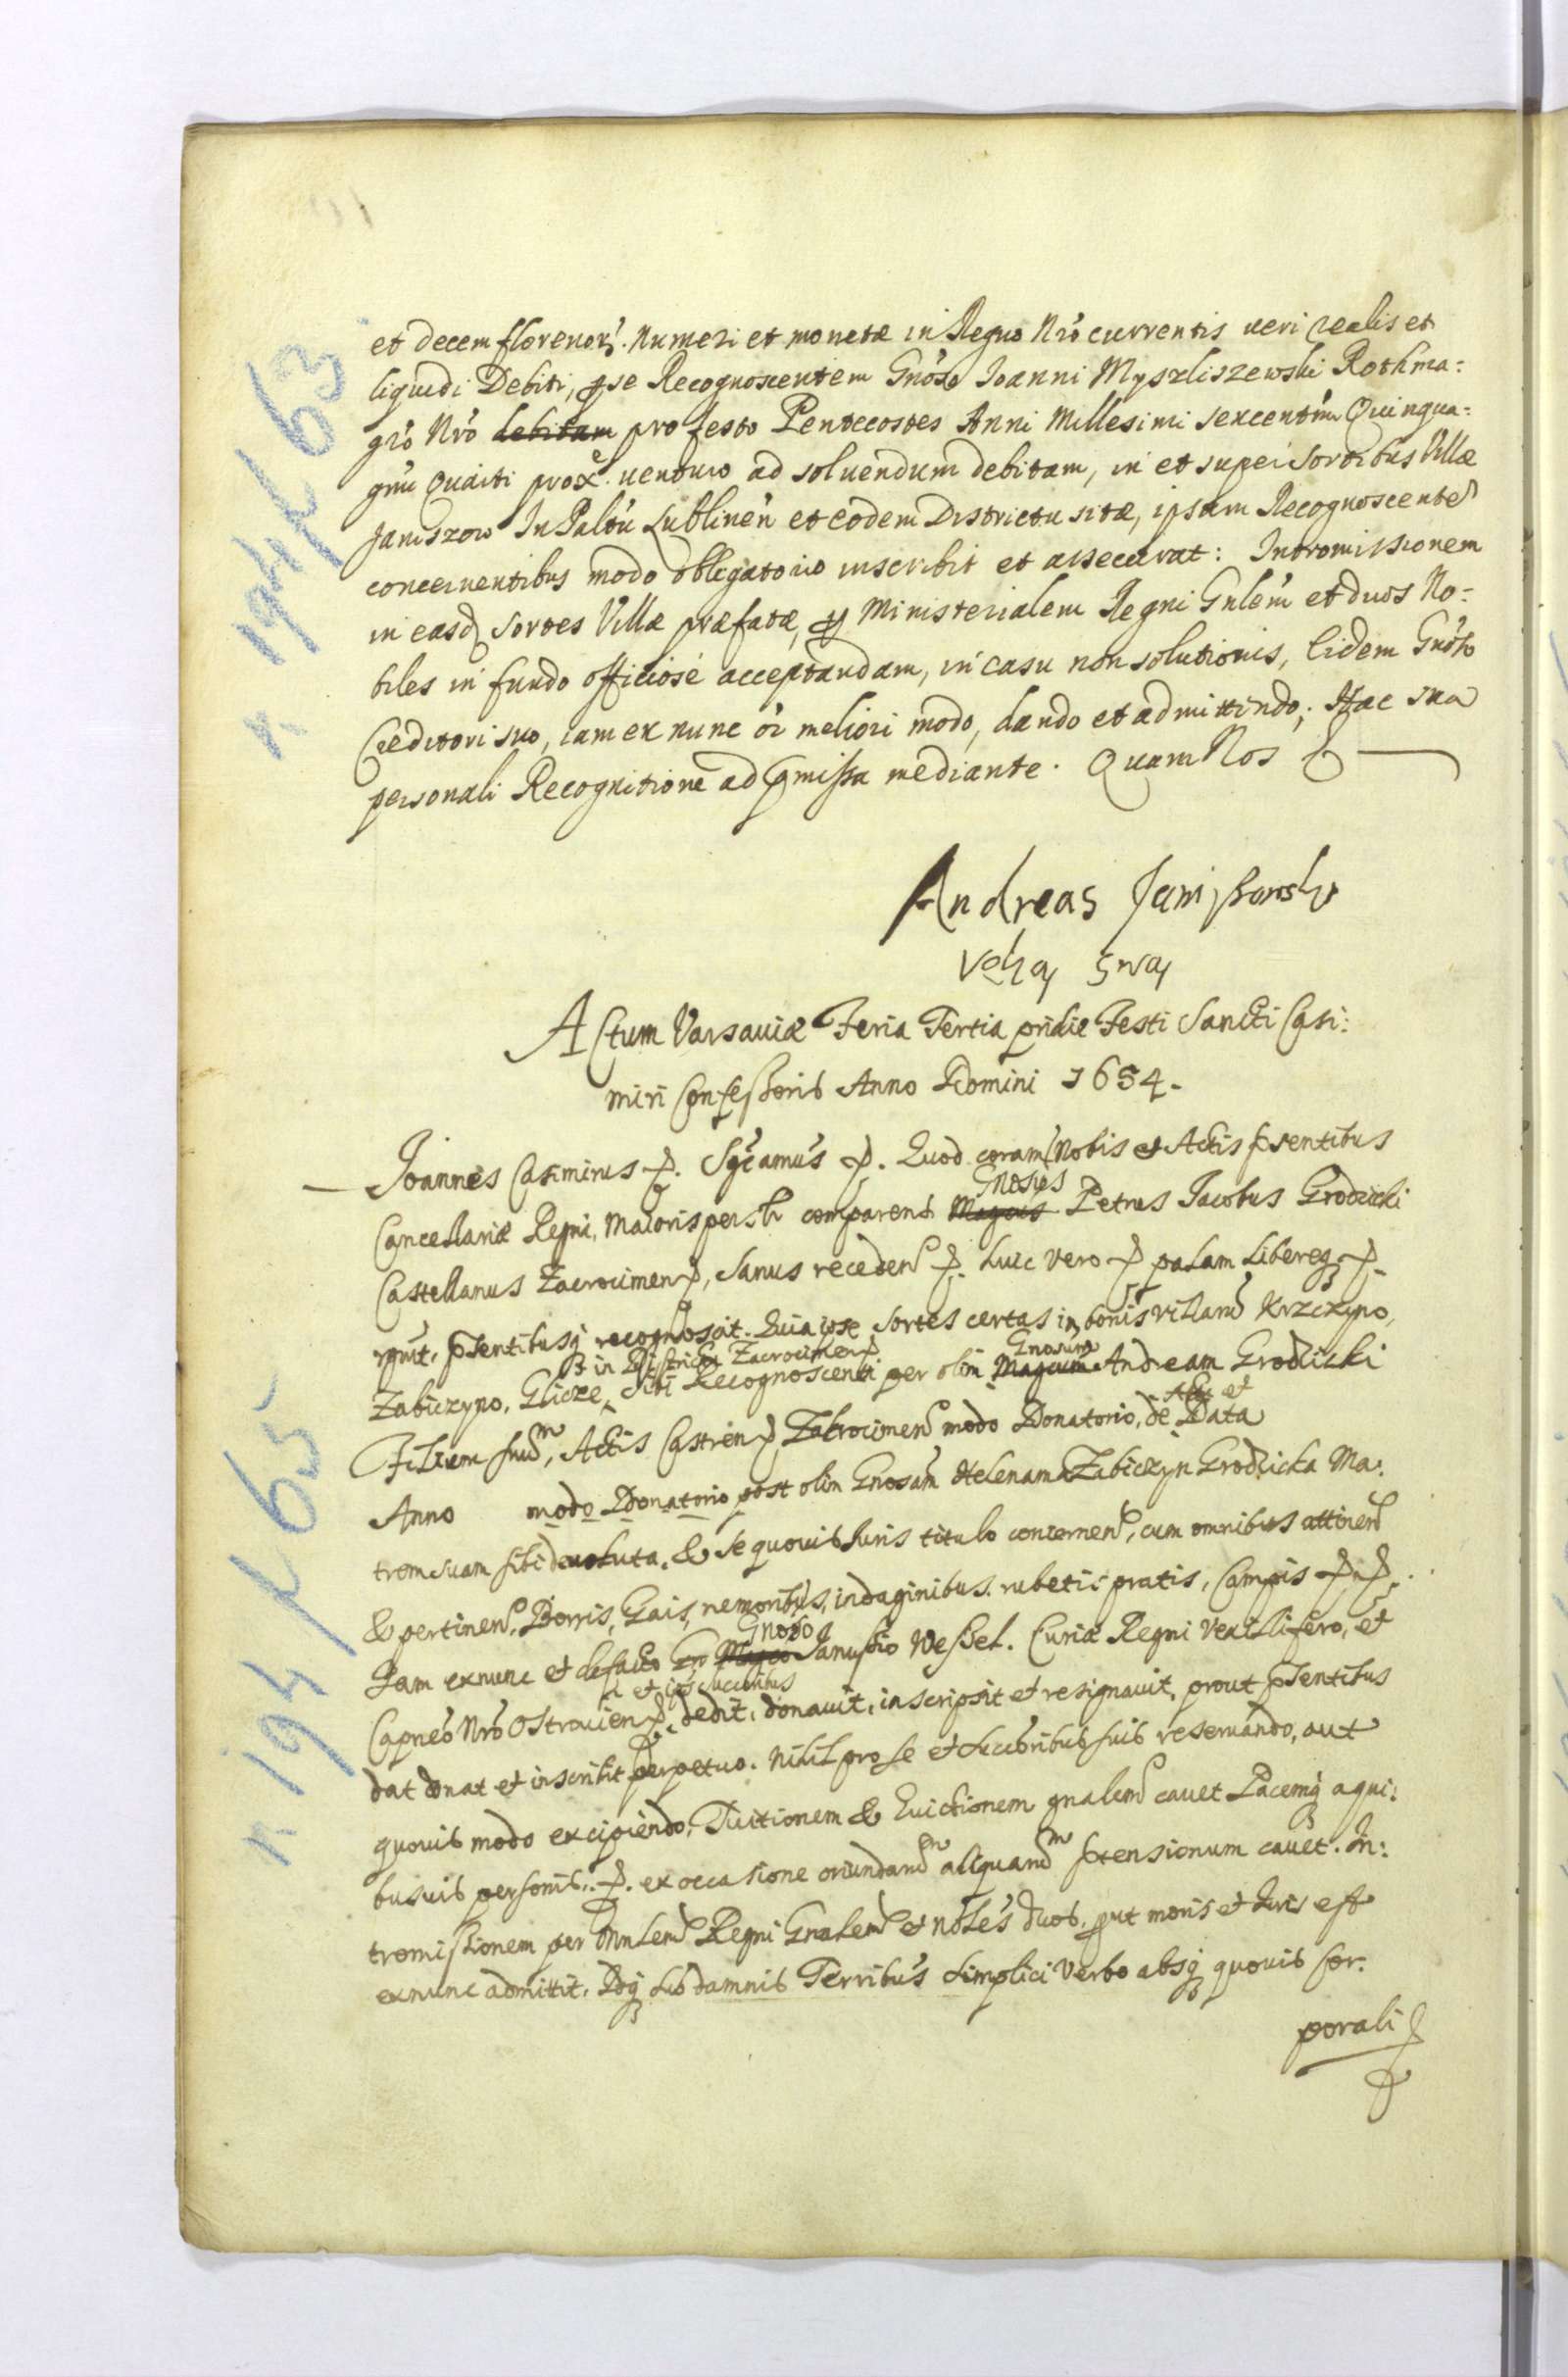 et decem florenor. Numeri et monetæ in Regno Nro currentis veri realis et
liquidi Debiti, per se Recognoscentem Gnoso Joanni Myszliszewski Rothma:
gro Nro debitam pro festo Pentecostes Anni Millesimi sexcentmi Quinqua:
gmi Quarti proxe. venturo ad solvendum debitam, in et super Sortibus Villæ
Janiszow In Paltu Lublinen et eodem Districtu sitæ, ipsum Recognoscente
concernentibus modo obligatorio inscribit et assecurat: Intromissionem
in easd Sortes Villæ præfatæ, per Ministerialem Regni Gnlem et duos No:
biles in fundo officiose acceptandam, in casu non solutionis, Eidem Gnoso
Creditori suo, iam ex nunc oi meliori modo, dando et admittendo; Hac sua
personali Recognitione ad pmissa mediante. Quam Nos
Andreas Janiszowsky
ręką swą
Actum Varsaviæ Feria Tertia pridie Festi Sancti Casi:
miri Confessoris Anno Domini 1654.
Joannes Casimirus. Sgcamus. Quod coram Nobis et Actis psentibus
Gnosus
Cancellariæ Regni, Maioris persr comparens Magcus Petrus Jacobus Grodzicki
Castellanus Zacrocimen, Sanus receden. huic vero palam Libereq
rquit. psentibusq recognoscit. Quia ipse Sortes certas in bonis villaru Krzczyno,
in Districtu Zacrocimen Gnosum
Zabiczyno, Glicze, Sibi Recognoscenti per olim Magcum Andream Grodzicki
Acta et
Filium suum, Actis Castren Zakrocimen modo Donatorio, de Data
Anno modo Donatorio post olim Gnosam Helenam Zabiczyn Grodzicka Ma:
trem suam sibi devoluta, & se quovis Juris titulo concernen, cum omnibus attinen
& pertinen, Borris, Gais, nemoribus, indaginibus. rubetis pratis, Campis
Gnoso
Jam exnunc et defacto Magco Janussio Wessel. Curiæ Regni Vexillifero, et
et ips succoribus
Capneo Nro Ostrovien, dedit, donavit, inscripsit et resignavit, prout psentibus
dat donat et inscribit perpetuo. Nihil pro se et succoribus suis reservando, aut
quovis modo excipiendo, Tuitionem & Evictionem gnalem cavet Pacemq a qui:
busvis personis. ex occasione oriundarum aliquarum ptensionum cavet. In:
tromissionem per Mnlem Regni Gnalem et Nobles duos, put moris et Juris est
exnunc admittit, Idq sub damnis Terribus simplici Verbo absq quovis cor:
porali
r. 194 k 63
r. 194 k 65